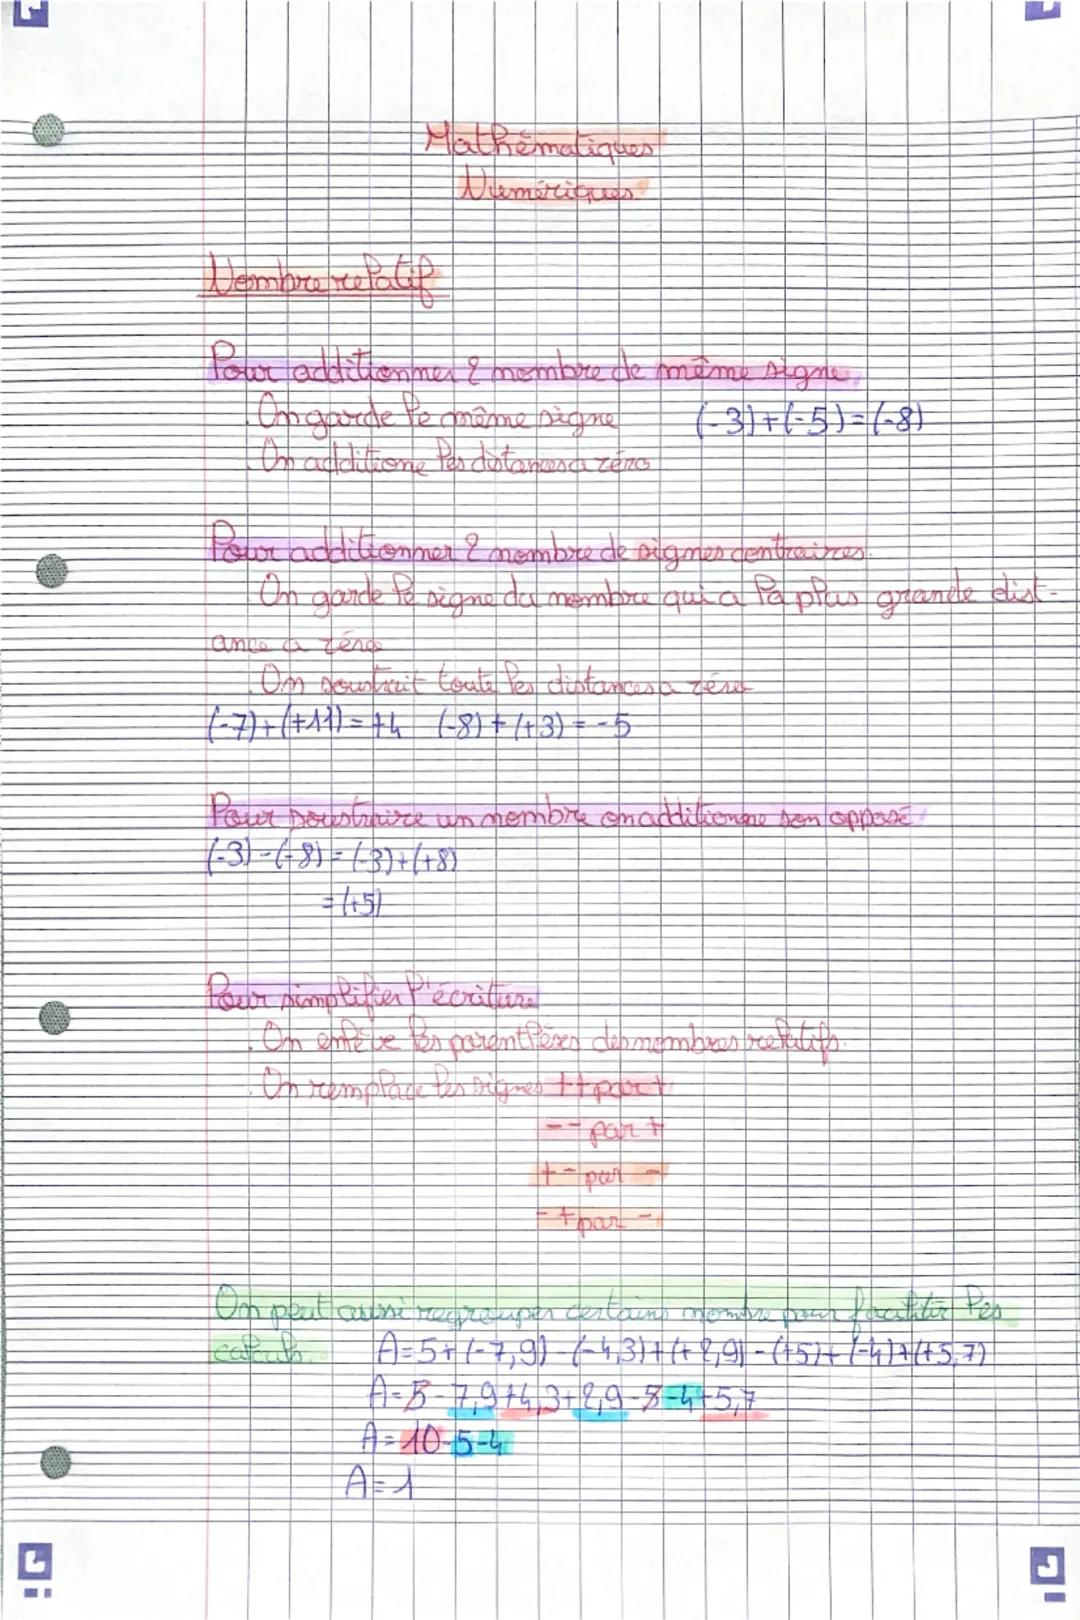 Mathématiques
Numériques
Nombre relatif
Pour additionner 2 nombre de même signe.
. On garde le même signe (-3)+(-5)=(-8)
. On additione les distances a zéro
Pour additionner 2 nombre de signes contraires.
. On garde le signe du nombre qui a la plus grande dist-
ance a zéro
. On soustrait toute les distances a zéro
(-7)+(+11)=+4 (-8)+(+3)=-5
Pour soustraire un nombre on additionne son opposé
(-3)-(-8)=(-3)+(+8)
=(+5)
Pour simplifier l'écriture
. On enlève les parenthèses des nombres relatifs.
. On remplace les signes ++ par +
-- par +
+- par -
-+ par -
On peut aussi regrouper certains nombre pour faciliter les
calculs. A=5+(-7,9)-(-4,3)+(+2,9)-(+5)+(-4)+(+5,7)
A=5-7,9+4,3+2,9-5-4+5,7
A=10-5-4
A=1